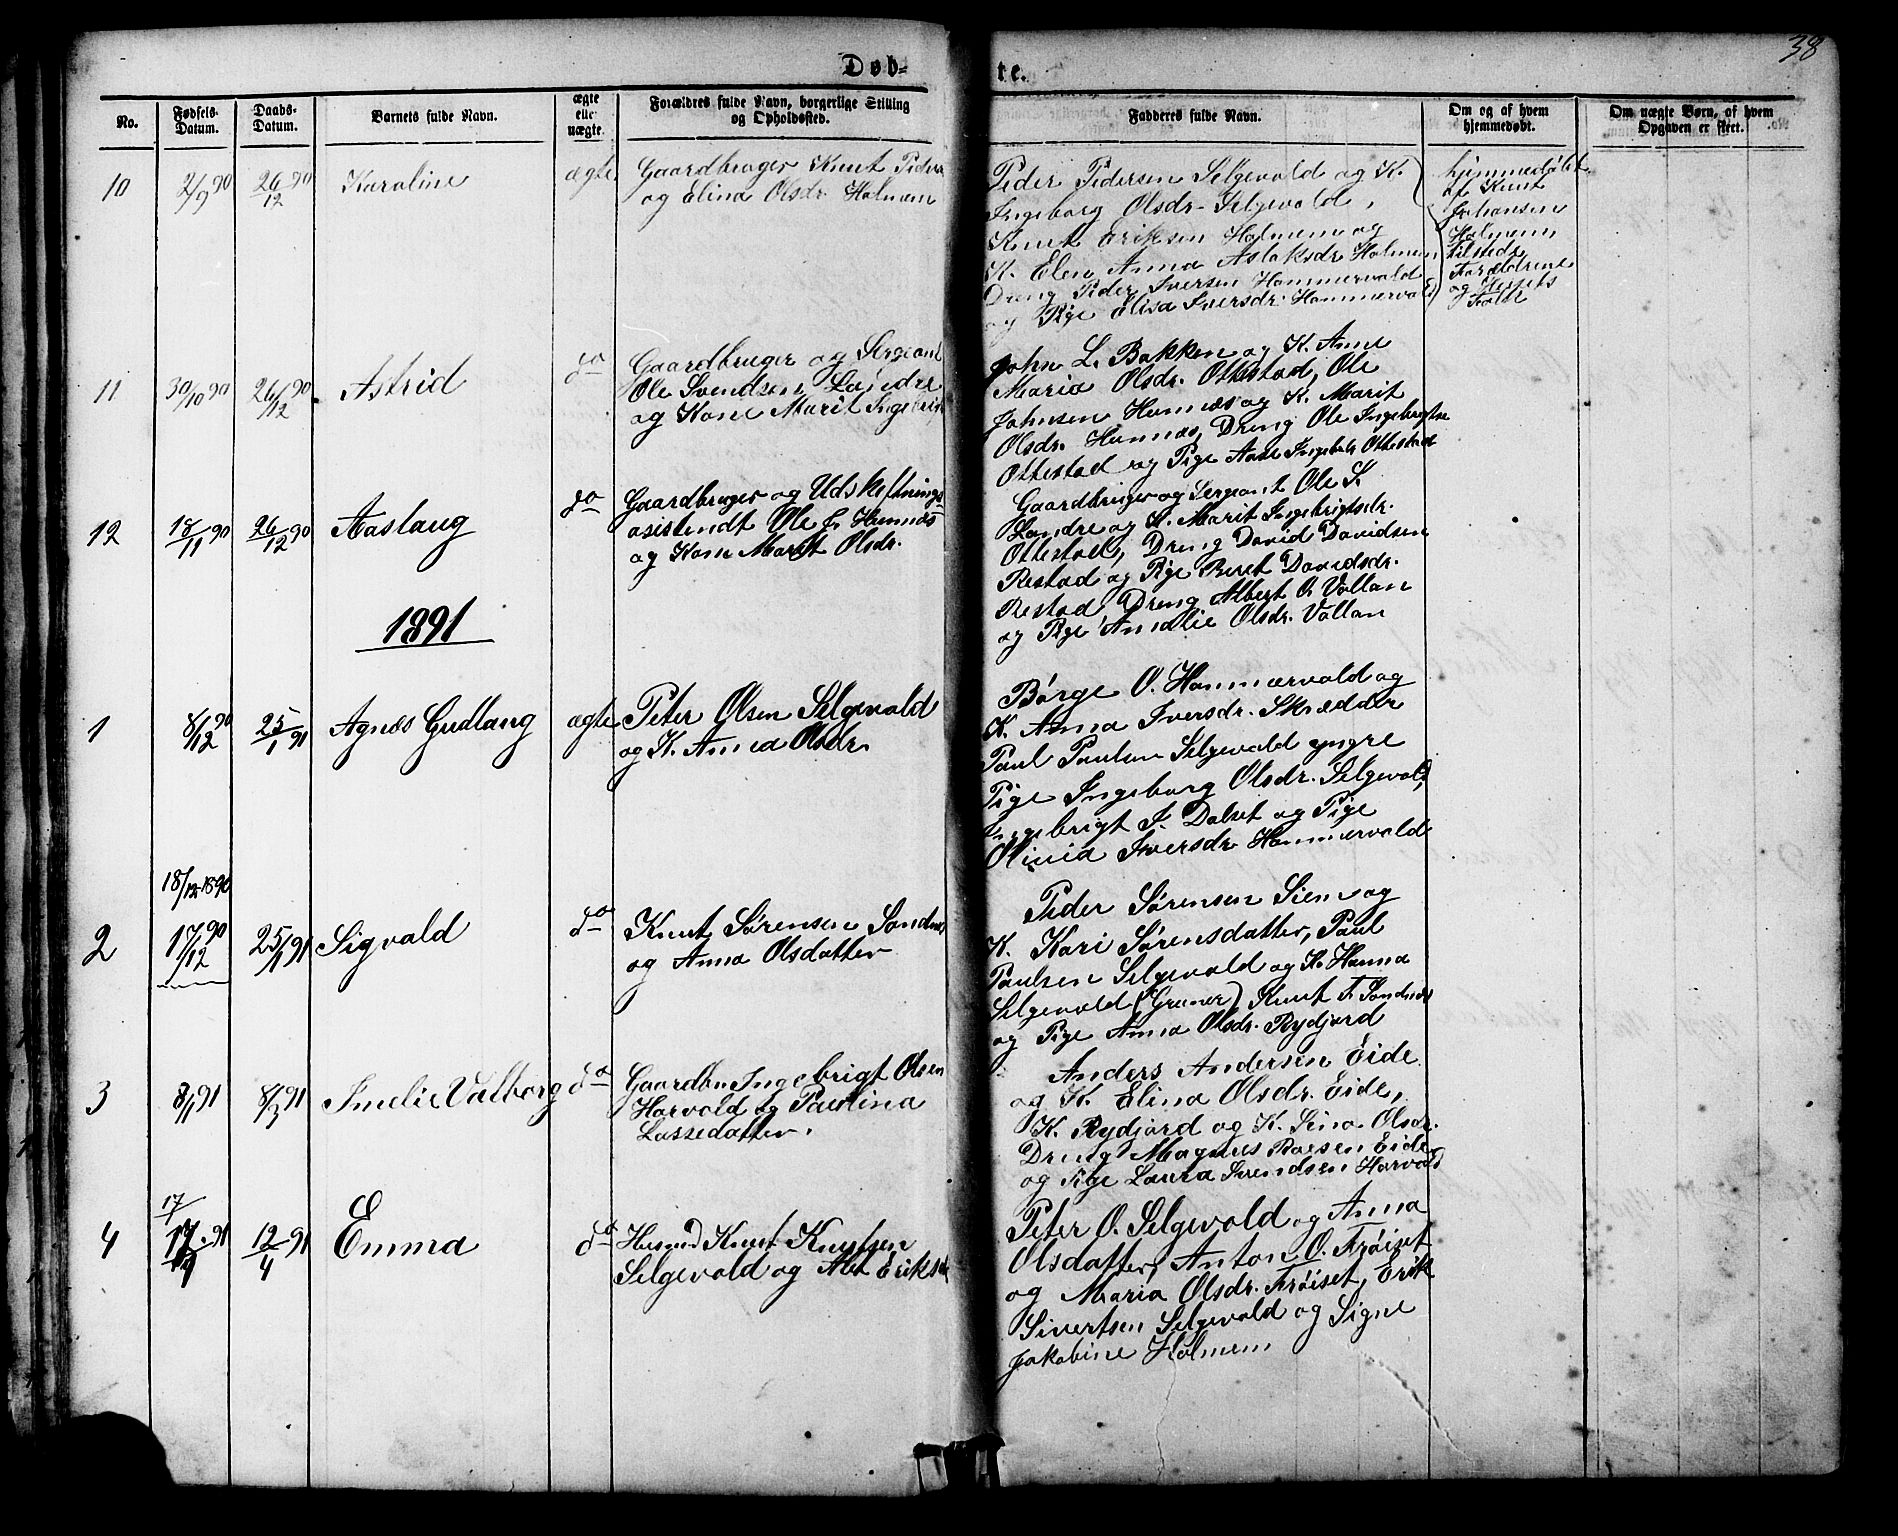 38
Døb-
te.
No.
Fødsels-
Datum.
Daabs-
Datum.
Barnets fulde Navn.
ægte
eller
uægte.
Forældres fulde Navn, borgerlige Stilling
og Opholdssted.
Faddernes fulde Navn.
Om og af hvem
hjemmedøbt.
Om uægte Børn, af hvem
Opgaven er skeet.
10
2/9 90
26/12 90
Karoline
ægte
Gaardbruger Knut Peders
og Elina Olsdr. Holmem
Peder Pedersen Selgevold og K.
Ingeborg Olsdr. Selgevold,
Knut Eriksen Holmem og
K. Elen Anna Aslaksdr. Holmem
Dreng Peder Iversen Hammervold
og Pige Elisa Iversdr. Hammervold
hjemmedøbt
af Knut
Johansen
Holmem
tilstede
Forældrene
og Husets
Folk
11
30/10 90
26/12 90
Astrid
do
Gaardbruger og Sergeant
Ole Svendsen Landre
og Kone Marit Ingebrigt
John L. Bakken og K. Anne
Maria Olsdr. Ottestad, Ole
Johnsen Hunnæs og K. Marit
Olsdr. Hunnæs, Dreng Ole Ingebrigtsen
Ottestad og Pige Ingebor Ottestad
12
18/11 90
26/12 90
Aaslaug
do
Gaardbruger og Udskiftnings-
asistendt Ole J. Hunnæs
og Kone Marit Olsdr.
Gaardbruger og Sergeant Ole S.
Landre og K. Marit Ingebrigtsdr.
Ottestad, Dreng David Davidsen
Restad og Pige Beret Davidsdr.
Restad, Dreng Albert O. Vollan
og Pige Amalie Olsdr. Vollan
1891
1
8/12 90
25/1 91
Agnes Gudlaug
ægte
Peter Olsen Selgevold
og K. Anna Olsdr.
Børge O. Hammervold og
K. Anna Iversdr. Skrædder
Paul Paulsen Selgevold yngre
Pige Ingeborg Olsdr. Selgevold,
Ingebrigt I. Dalset og Pige
Olivia Iversdr. Hammervold
18/12 1890
2
17/12 90
25/1 91
Sigvald
do
Knut Sørensen Sandnes
og Anna Olsdatter
Peder Sørensen Siem og
K. Kari Sørensdatter, Paul
Paulsen Selgevold og K. Hanna
Selgevold (Gramer), Knut F. Sandnes
og Pige Anna Olsdr. Rydjord
3
8/1 91
8/3 91
Emelie Valborg
do
Gaardbr. Ingebrigt Olsen
Harvold og Paulina
Lassedatter.
Anders Andersen Eide
og K. Elina Olsdr. Eide,
K. Rydjord og K. Sina Olsdr.
Dreng Magnus Eide
og Pige Laura Svendsen Harvold
17/
4
91
12/4 91
Emma
do
Husmd Knut Knutsen
Selgevold og Alet Eriksd
Peter O. Selgevold og Anna
Olsdatter, Anton O. Frøiset
og Maria Olsdr. Frøiset, Erik
Sivertsen Selgevold og Signe
Jakobine Holmem